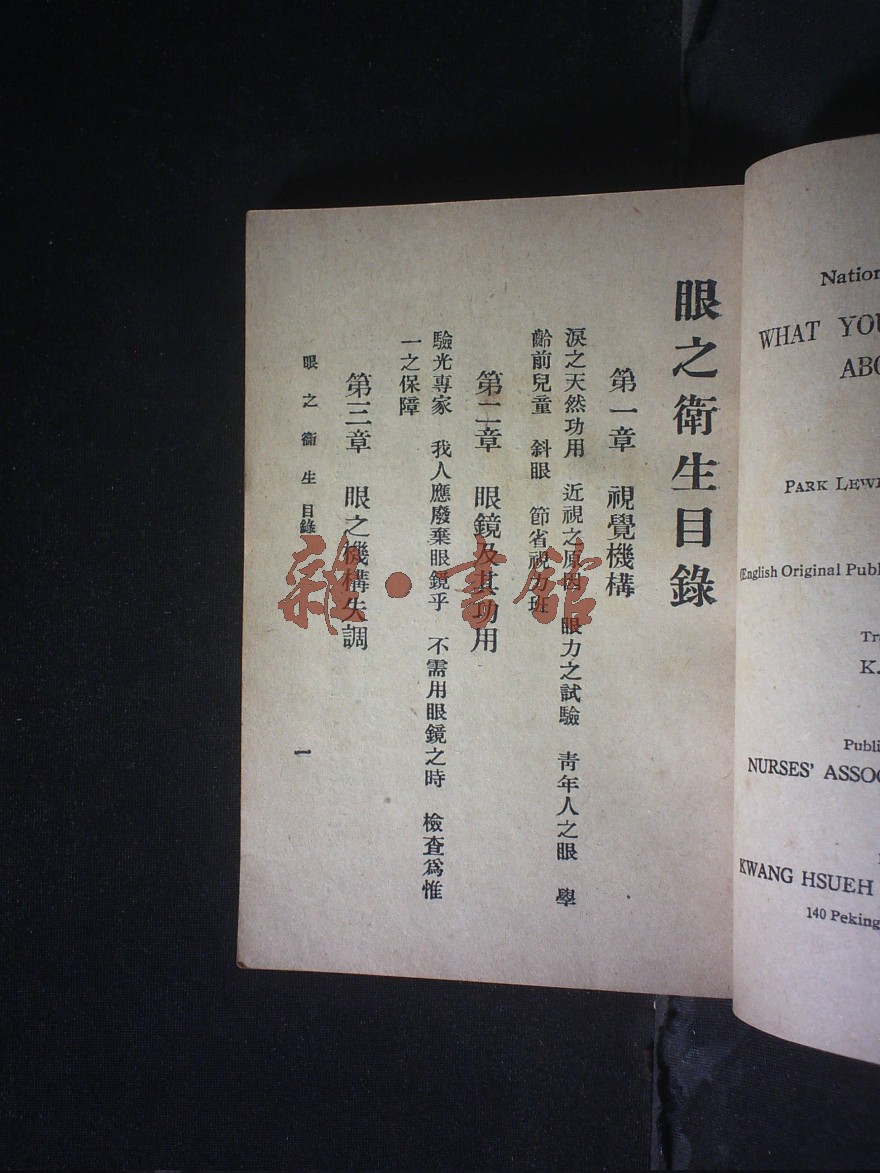 眼之衛生目錄
第一章 視覺機構
淚之天然功用 近視之原因 眼力之試驗 青年人之眼 學
齡前兒童 斜眼 節省視力班
第二章 眼鏡及其功用
驗光專家 我人應廢棄眼鏡乎 不需用眼鏡之時 檢查爲惟
一之保障
第三章 眼之機構失調
眼之衞生 目錄
一
雜·書館
WHAT YOU
PARK
(English Original
K.
NURSES'
KWANG HSUEH
140 Peking